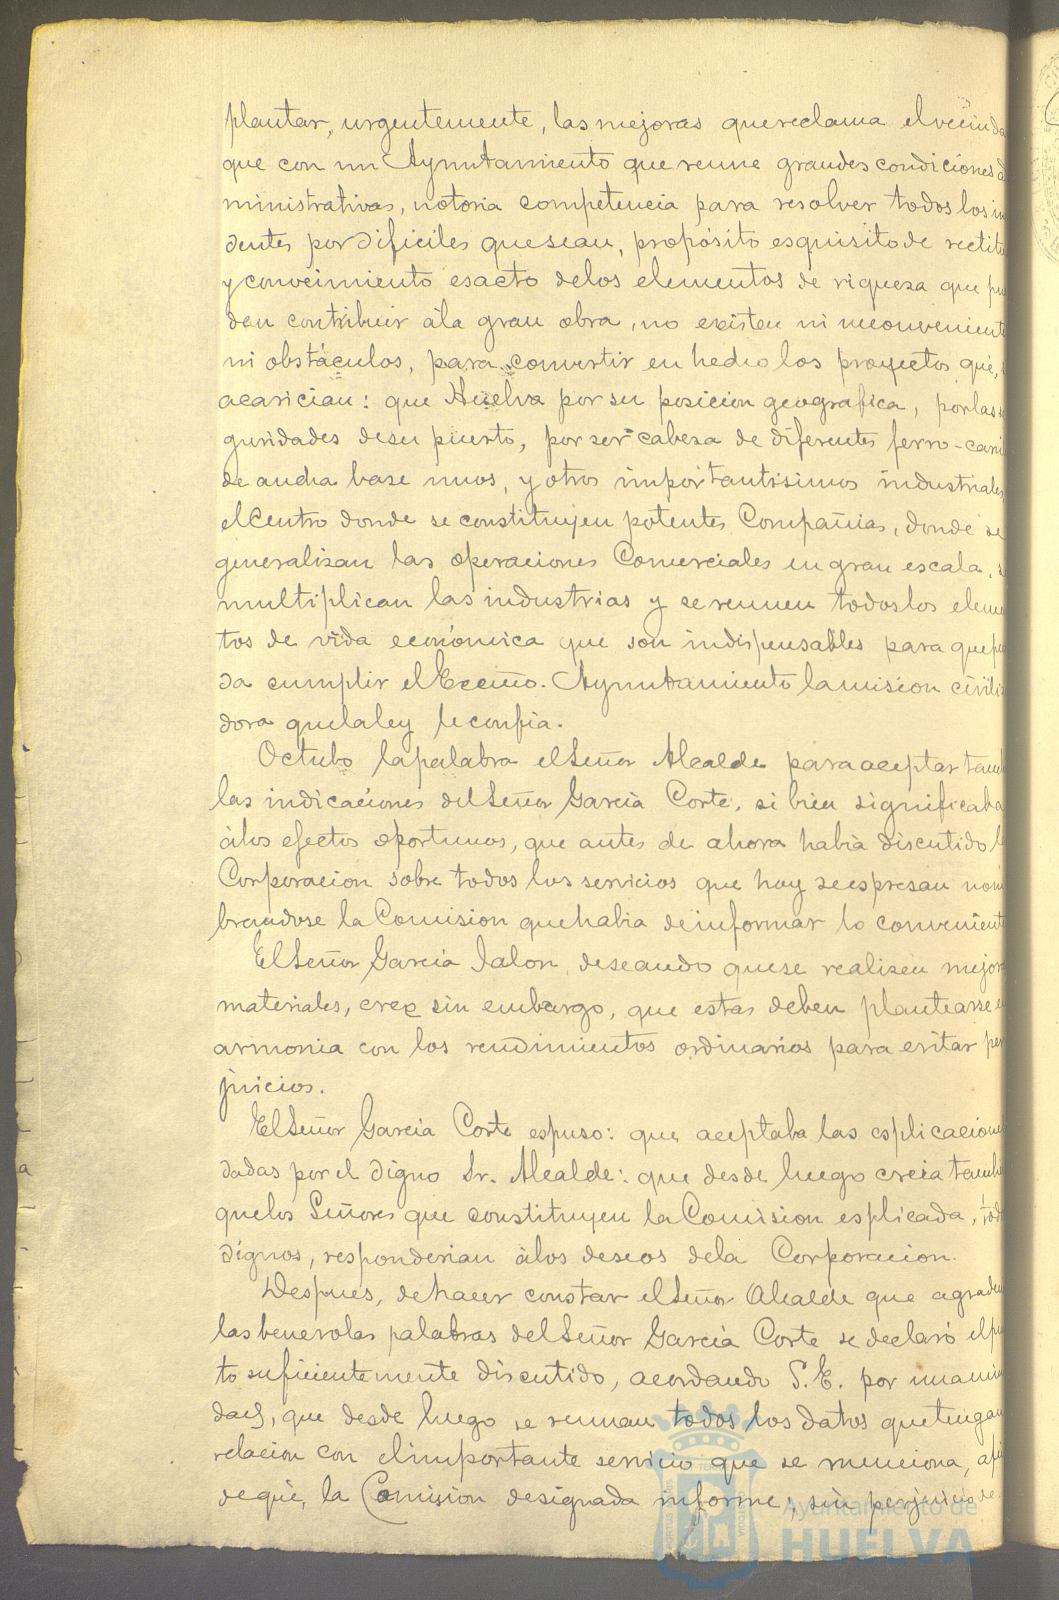 plantar, urgentemente, las mejoras que reclama el vecinda
que con un Ayuntamiento que reune grandes condiciones ad
ministrativas, notoria competencia para resolver todos los in
dentes por dificiles que sean, propósito esquisito de rectitu
y conocimiento esacto de los elementos de riqueza que pu
den contribuir á la gran obra, no existen ni inconvenient
ni obstáculos, para convertir en hecho los proyectos que, s
acarician: que Huelva por su posicion geografica, por las se
guridades de su puerto, por ser cabeza de diferentes ferro-carri
de ancha base unos, y otros importantisimos industriales
el centro donde se constituyen potentes Compañias, donde se
generalizan las operaciones Comerciales en gran escala, s
multiplican las industrias y se reunen todos los eleme
tos de vida económica que son indispensables para que pu
da cumplir el Excmo. Ayuntamiento la mision civiliz
dora que la ley le confia.
Octubo la palabra el Señor Alcalde para aceptar tamb
las indicaciones del Señor Garcia Corte, si bien significaba
á los efectos oportunos, que antes de ahora habia discutido l
Corporacion sobre todos los servicios que hoy se espresan nom
brandose la Comision que habia de informar lo convenient
El Señor Garcia Jalon, deseando que se realizen mejor
materiales, cree sin embargo, que estas deben plantearse e
armonia con los rendimientos ordinarios para evitar per
juicios.
El Señor Garcia Corte espuso: que aceptaba las esplicacione
dadas por el digno Sr. Alcalde: que desde luego creia tambi
que los Señores que constituyen la Comision esplicada, tod
dignos, responderian á los deseos de la Corporacion.
Despues, de hacer constar el Señor Alcalde que agradec
las benevolas palabras del Señor Garcia Corte se declaró el pu
to suficientemente discutido, acordando S. E. por unanimi
dad, que desde luego se reunan todos los datos que tengan
relacion con el importante servicio que se menciona, afi
de que, la Comision designada informe; sin perjuicio de
Ayuntamiento de
HUELVA